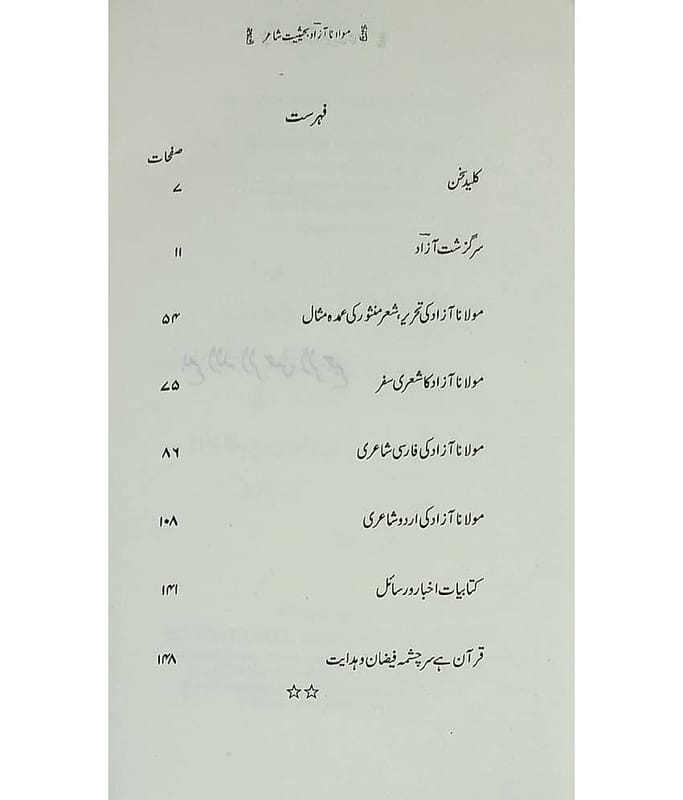 مولانا آزاد بحیثیت شاعر
فہرست
صفحات
کلید سخن ۷
سرگزشت آزاد ۱۱
مولانا آزاد کی تحریر، شعر منثور کی عمدہ مثال ۵۴
مولانا آزاد کا شعری سفر ۷۵
مولانا آزاد کی فارسی شاعری ۸۶
مولانا آزاد کی اردو شاعری ۱۰۸
کتابیات اخبار و رسائل ۱۴۱
قرآن ہے سرچشمہ فیضان و ہدایت ۱۴۸
☆☆